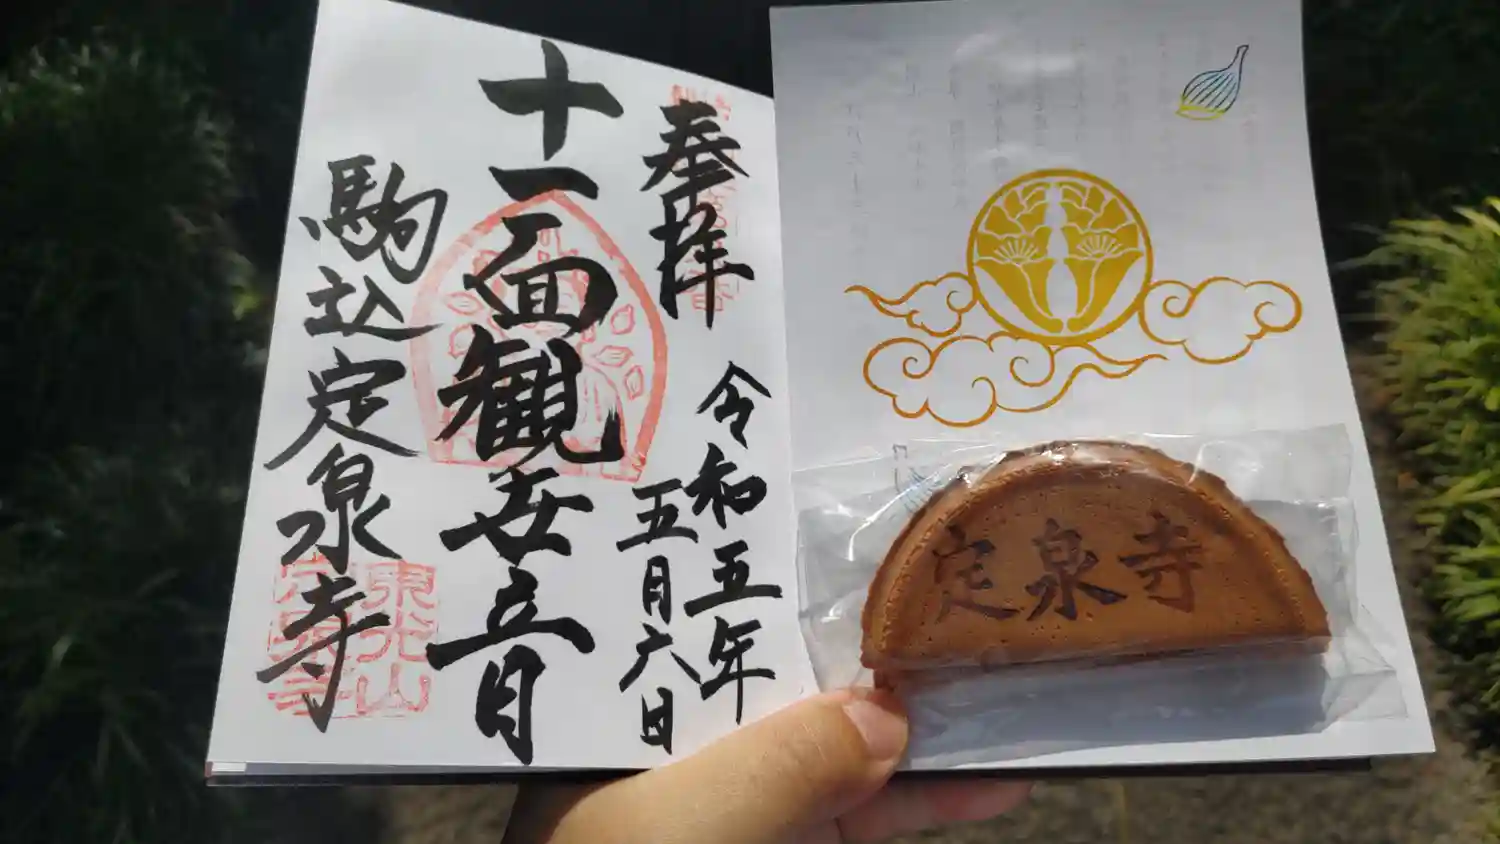 奉拝
令和五年
五月六日
十一面観世音
駒込定泉寺
東光山
定泉寺
定泉寺